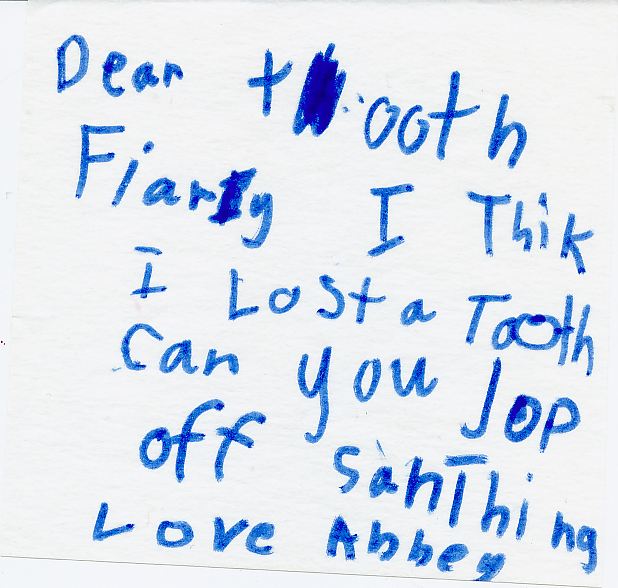 Dear tooth
Fiary I Thik
I Lost a Tooth
Can you Jop
off sanThing
Love Abbey